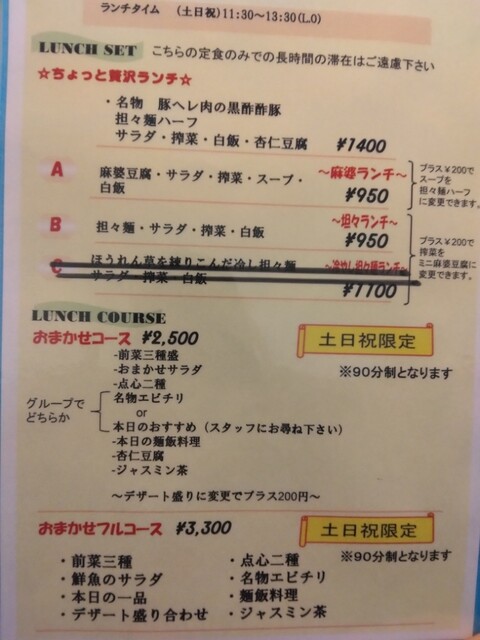 ランチタイム　(土日祝)11:30～13:30(L.O)
LUNCH SET　こちらの定食のみでの長時間の滞在はご遠慮下さい
☆ちょっと贅沢ランチ☆
・名物　豚ヘレ肉の黒酢酢豚
担々麺ハーフ
サラダ・搾菜・白飯・杏仁豆腐　¥1400
A　麻婆豆腐・サラダ・搾菜・スープ・
白飯
～麻婆ランチ～
¥950
プラス¥200で
スープを
担々麺ハーフ
に変更できます。
B　担々麺・サラダ・搾菜・白飯
～坦々ランチ～
¥950
C　ほうれん草を練りこんだ冷し担々麺
サラダ・搾菜・白飯
～冷やし担々麺ランチ～
¥1100
プラス¥200で
搾菜を
ミニ麻婆豆腐に
変更できます。
LUNCH COURSE
おまかせコース　¥2,500
土日祝限定
※90分制となります
-前菜三種盛
-おまかせサラダ
-点心二種
グループで
どちらか
名物エビチリ
or
本日のおすすめ（スタッフにお尋ね下さい）
-本日の麺飯料理
-杏仁豆腐
-ジャスミン茶
～デザート盛りに変更でプラス200円～
おまかせフルコース　¥3,300
土日祝限定
※90分制となります
・前菜三種
・鮮魚のサラダ
・本日の一品
・デザート盛り合わせ
・点心二種
・名物エビチリ
・麺飯料理
・ジャスミン茶